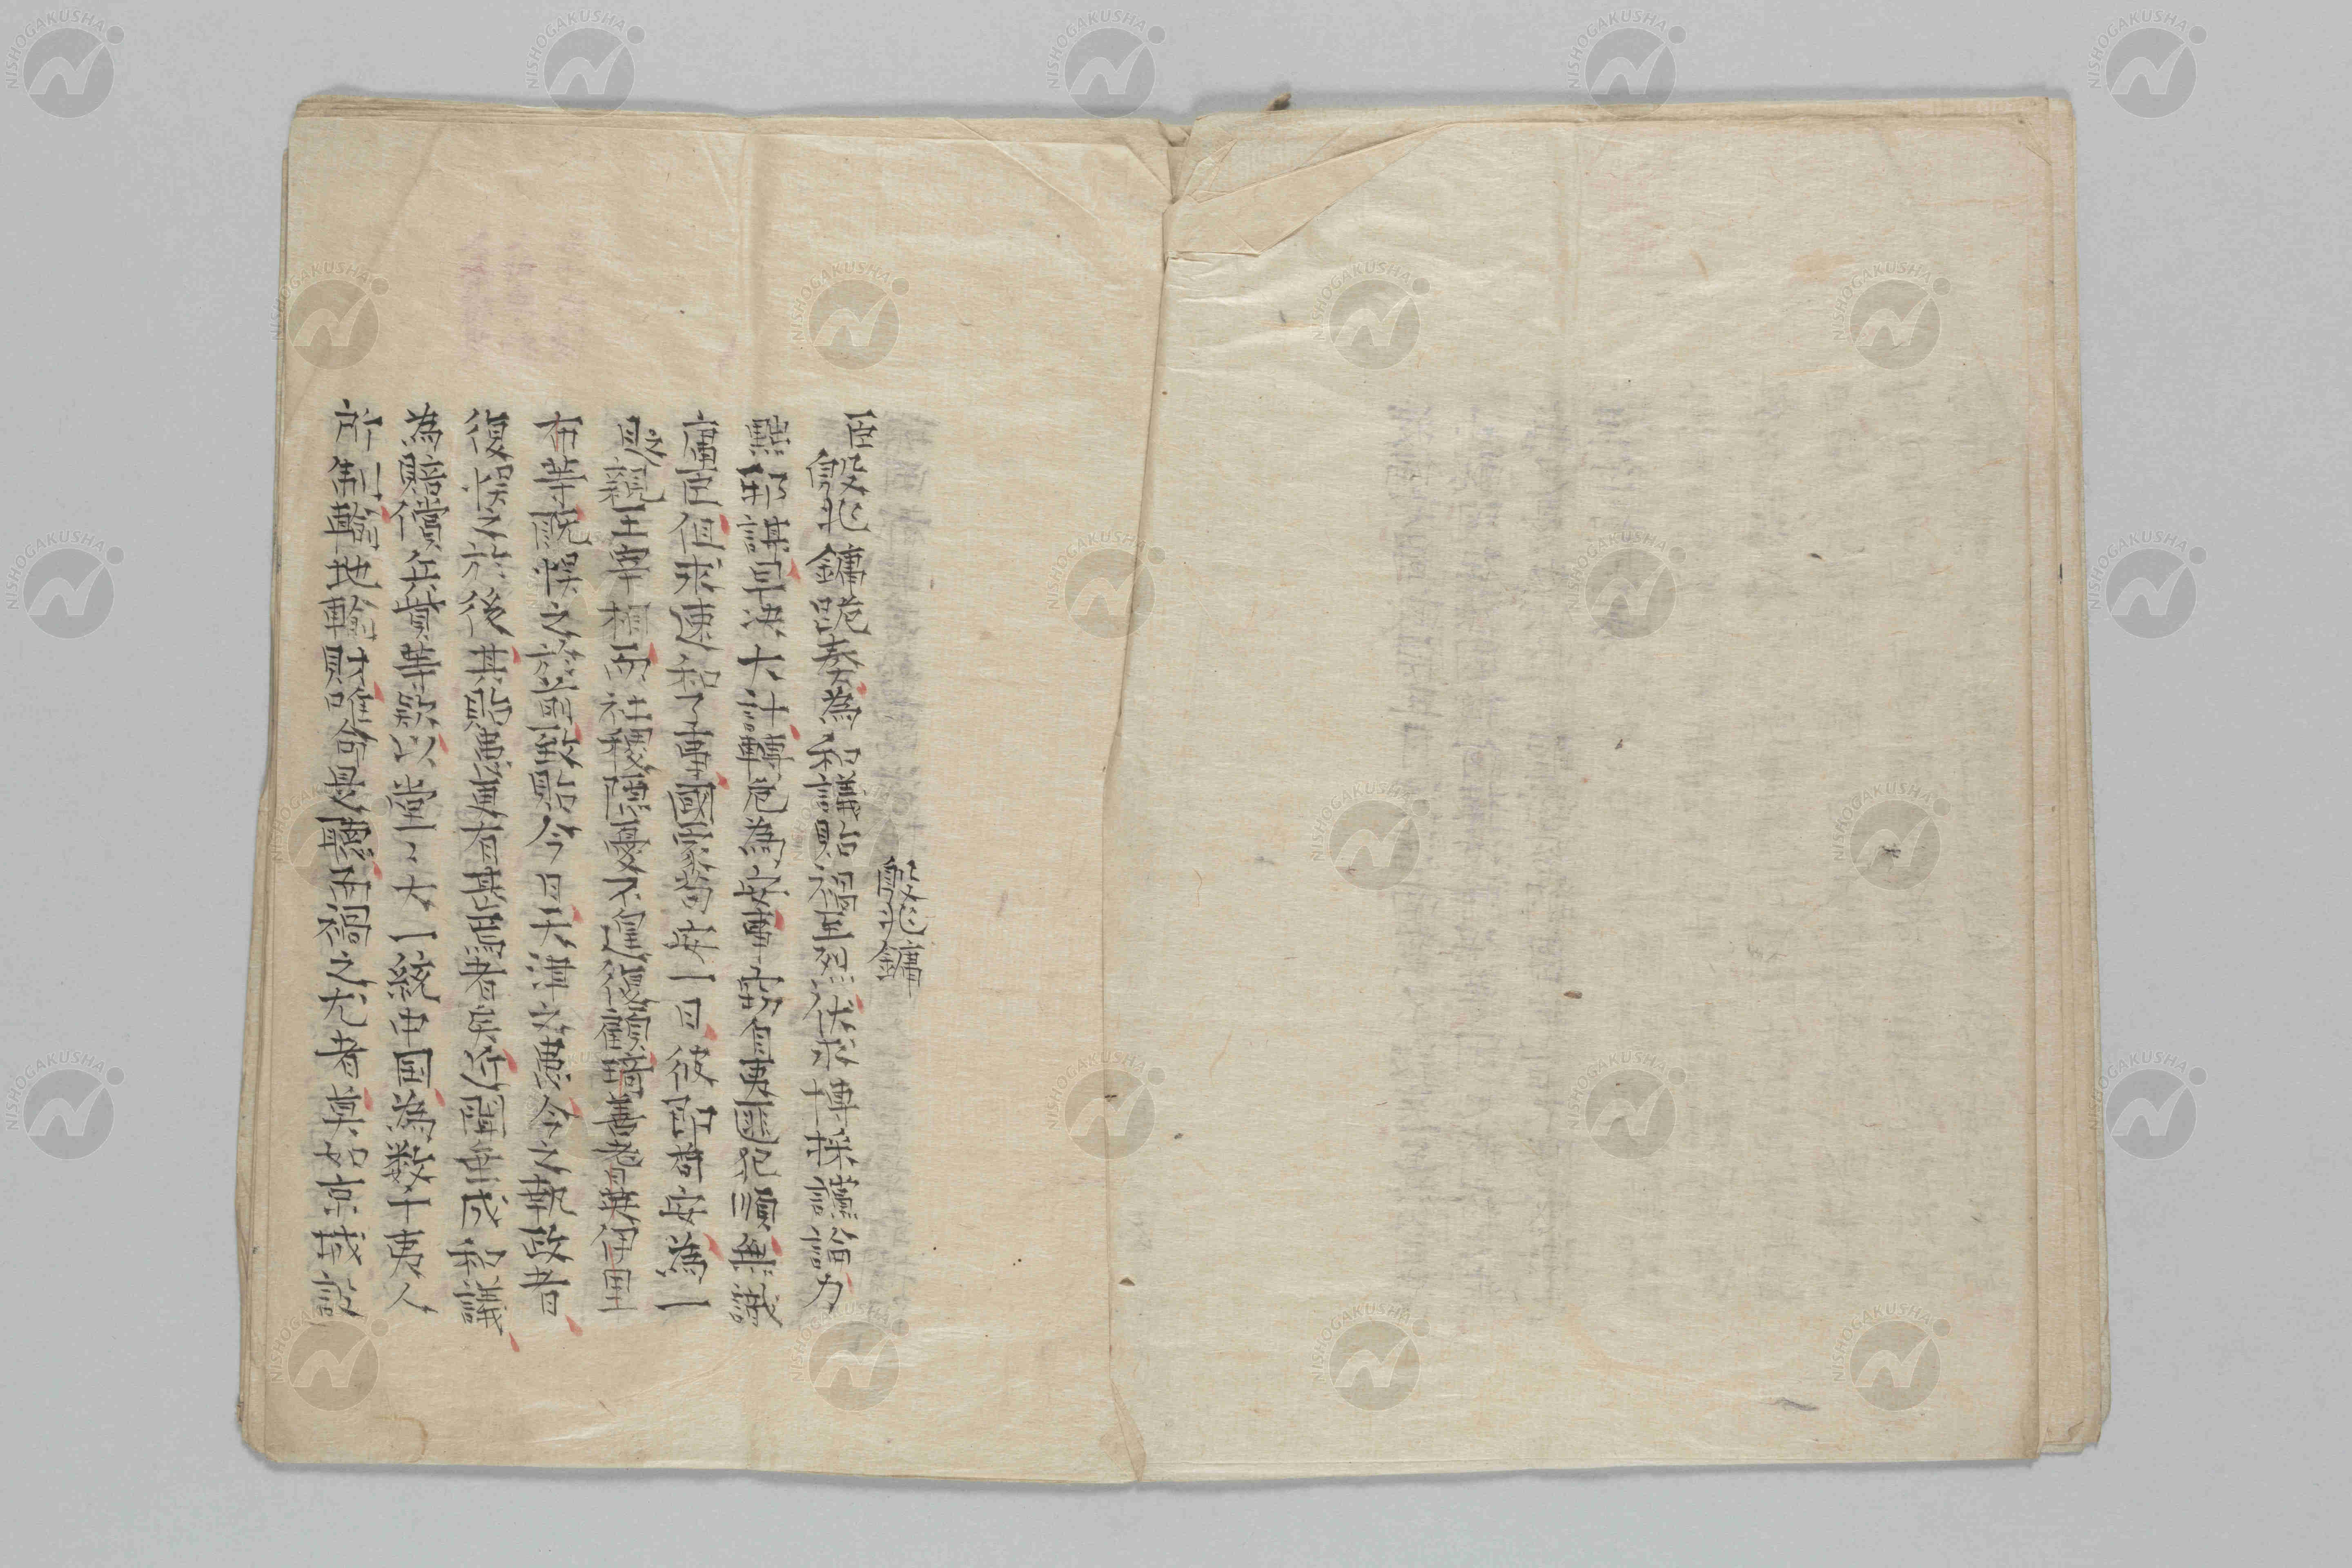 殷兆鏞
臣殷兆鏞跪奏為和議貽禍至烈伏求博採力
黜邪謀早決大計轉危為安事竊自東匪犯順無識
庸臣但求速和了事國家苟安一日彼即苟安為一
賢親王宰相而社稷隱憂不遑復顧琦善耆英伊里
布等既悞之於前致貽今日天津之患今之執政者
復悞之於後其貽患更有甚焉者矣近聞垂成和議
為賠償兵費等款以堂々大一統中國為數千夷人
所制輸地輸財唯命是聽而禍之尤者莫如京城設
NISHOGAKUSHA